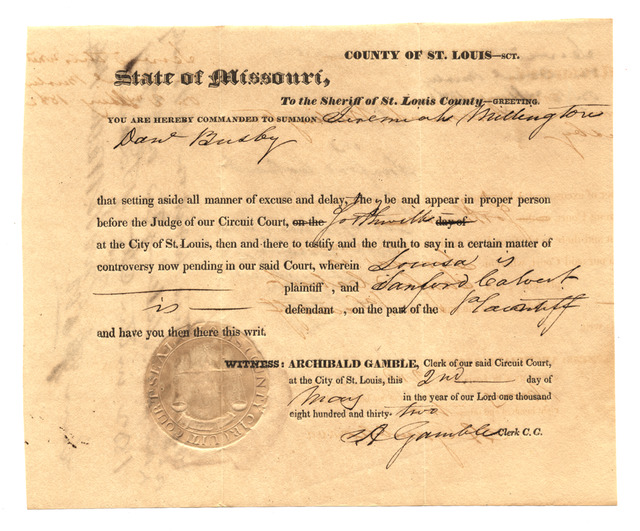 COUNTY OF ST. LOUIS—SCT.
State of Missouri,
To the Sheriff of St. Louis County—GREETING.
YOU ARE HEREBY COMMANDED TO SUMMON Jeremiah Millington
Danl Busby
that setting aside all manner of excuse and delay, the y be and appear in proper person
before the Judge of our Circuit Court, on the forthwith day of
at the City of St. Louis, then and there to testify and the truth to say in a certain matter of
controversy now pending in our said Court, wherein Louisa is
plaintiff , and Sanford Calvert
is
defendant , on the part of the Plaintiff
and have you then there this writ.
WITNESS: ARCHIBALD GAMBLE, Clerk of our said Circuit Court,
at the City of St. Louis, this 2nd day of
May in the year of our Lord one thousand
eight hundred and thirty-two
A Gamble Clerk C. C.